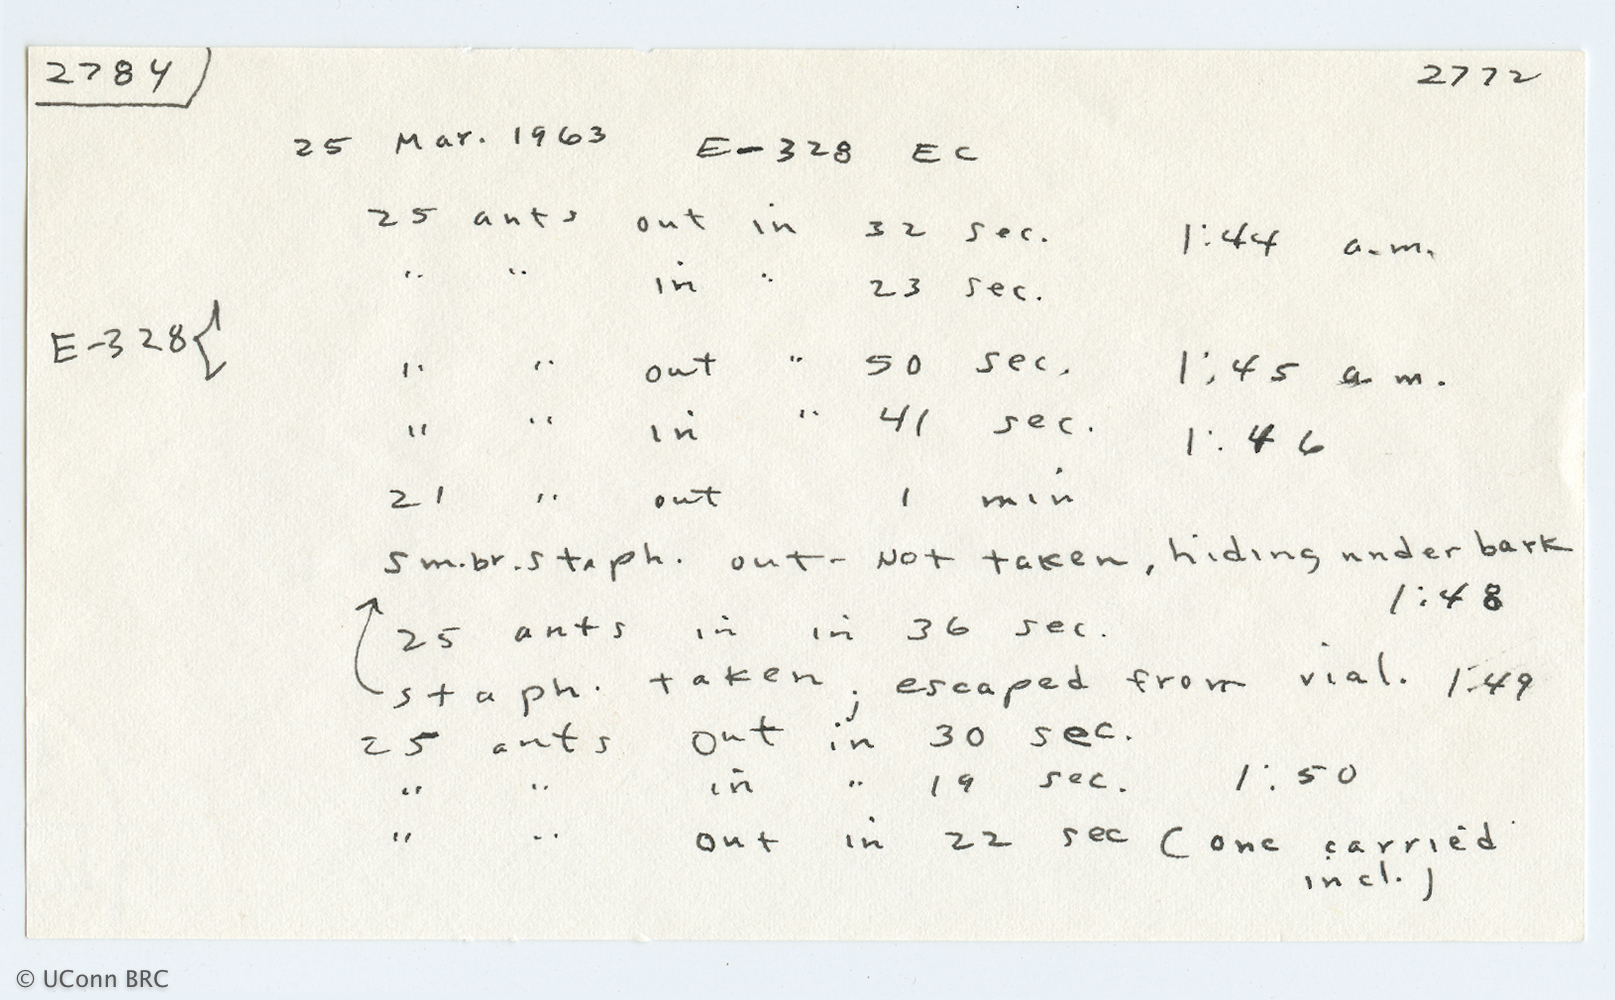 2784 2772
25 Mar. 1963 E-328 EC
25 ants out in 32 sec. 1:44 a.m.
" " in " 23 sec.
E-328{
" " out " 50 sec. 1:45 a.m.
" " in " 41 sec. 1:46
21 " out 1 min
sm.br.staph. out - Not taken, hiding under bark
1:48
25 ants in in 36 sec.
staph. taken; escaped from vial. 1:49
25 ants out in 30 sec.
" " in " 19 sec. 1:50
" " out in 22 sec (one carried
incl.)
© UConn BRC